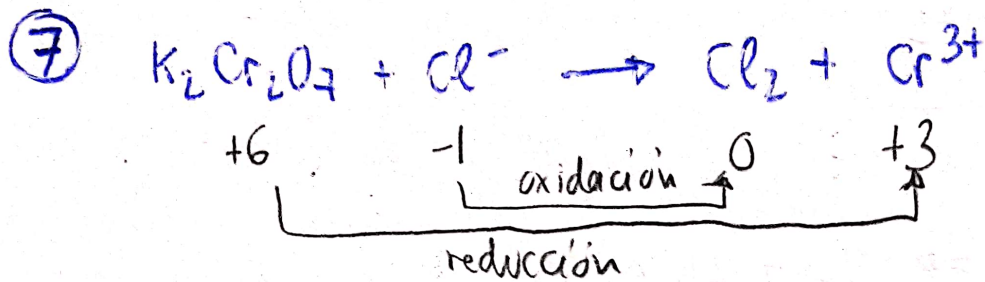 7 K₂Cr₂O₇ + Cl⁻ → Cl₂ + Cr³⁺
+6 -1 0 +3
oxidación
reducción